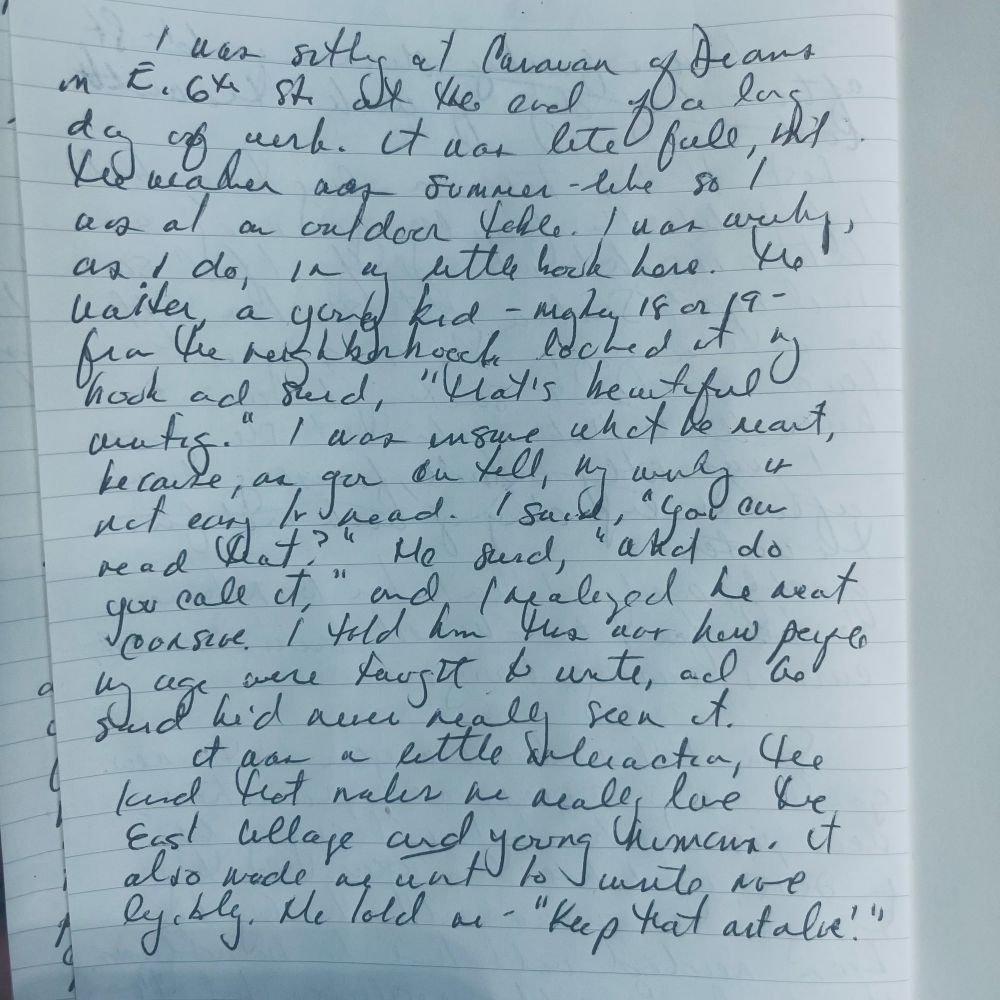 I was sitting at Caravan of Dreams
on E. 6th St. at the end of a long
day of work. It was late fall, but
the weather was summer-like so I
was at an outdoor table. I was writing,
as I do, in my little book here. The
waiter, a young kid - maybe 18 or 19 -
from the neighborhood looked at my
book and said, "that's beautiful
writing." I was unsure what he meant,
because, as you can tell, my writing is
not easy to read. I said, "You can
read that?" He said, "what do
you call it," and I realized he meant
cursive. I told him this was how people
my age were taught to write, and he
said he'd never really seen it.
It was a little interaction, the
kind that makes me really love the
East Village and young humans. It
also made me want to write more
legibly. He told me - "Keep that art alive!"